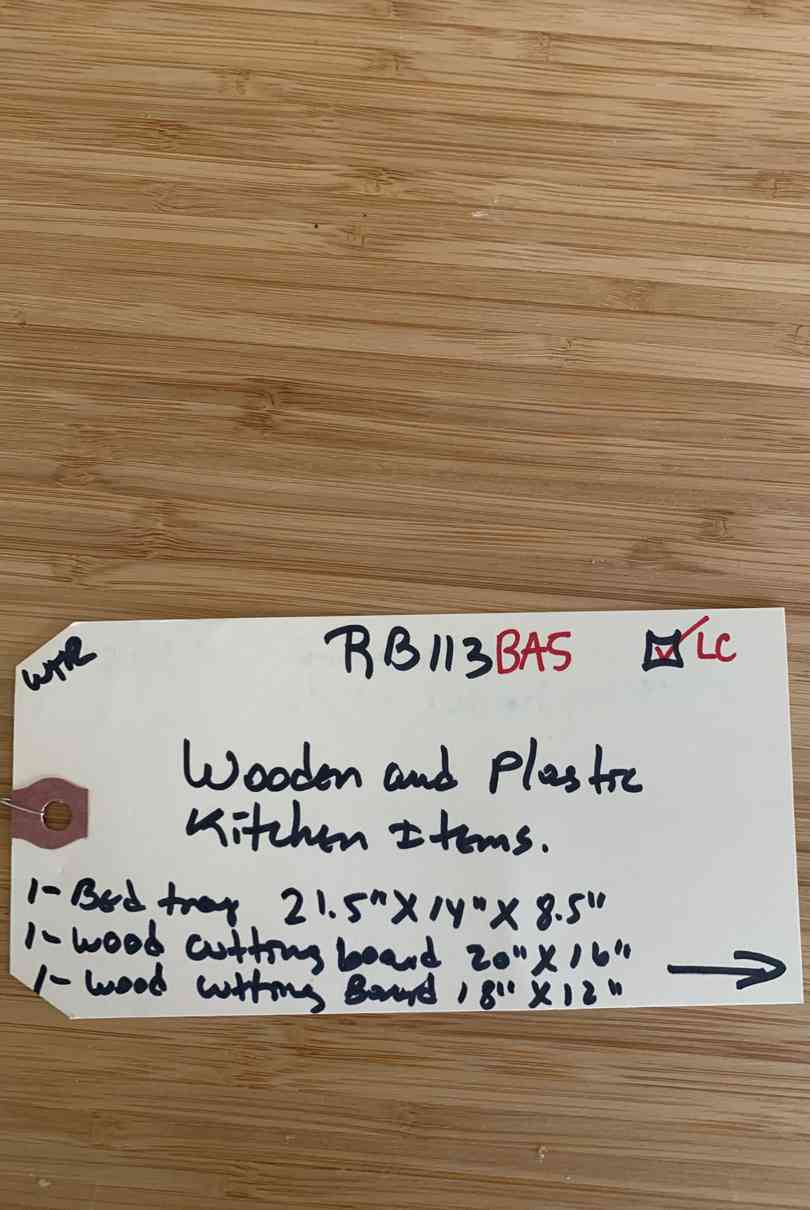 WTR
RB113BAS LC
Wooden and Plastic
Kitchen Items.
1- Bed tray 21.5" X 14" X 8.5"
1- wood cutting board 20" X 16"
1- wood cutting Board 18" X 12"